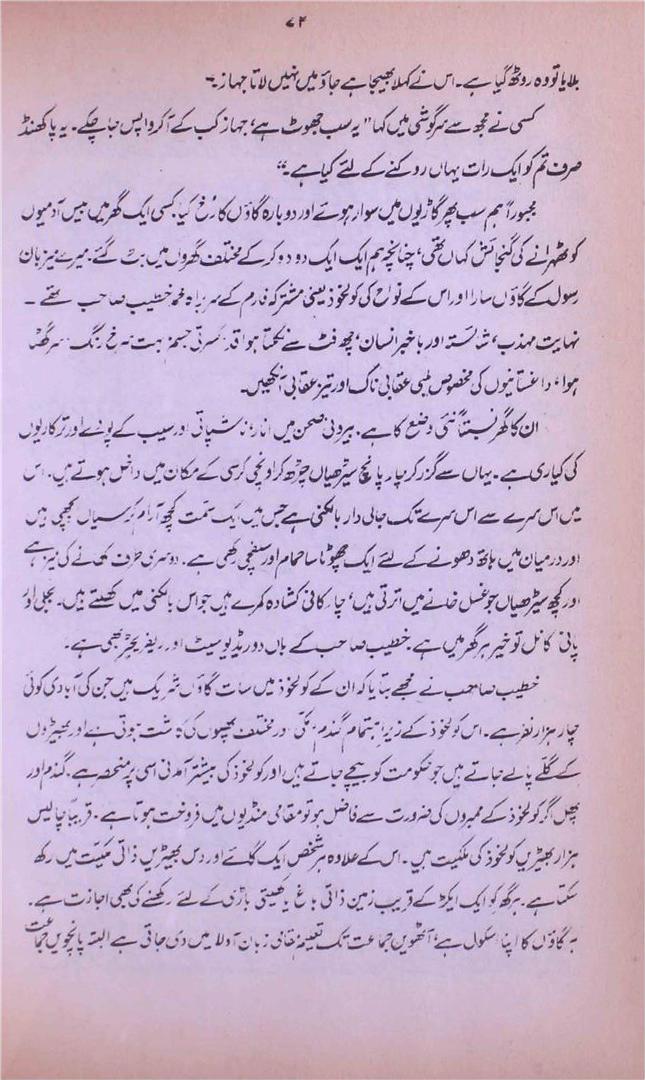 ۷۴
بلایا تو وہ روٹھ گیا ہے۔ اس نے کہلا بھیجا ہے جاؤ میں نہیں لاتا جہاز۔
کسی نے مجھ سے سرگوشی میں کہا "یہ سب جھوٹ ہے، جہاز کب کے آ کر واپس جا چکے۔ یہ پاکھنڈ
صرف تم کو ایک رات یہاں روکنے کے لئے کیا ہے۔"
مجبوراً ہم سب پھر گاڑیوں میں سوار ہوئے اور دوبارہ گاؤں کا رخ کیا کسی ایک گھر میں بیس آدمیوں
کو ٹھہرانے کی گنجائش کہاں تھی، چنانچہ ہم ایک ایک دو دو کر کے مختلف گھروں میں بٹ گئے۔ میرے میزبان
رسول کے گاؤں سارا اور اس کے نواح کی کولخوذ یعنی مشترکہ فارم کے سربراہ محمد خطیب صاحب تھے۔
نہایت مہذب، شائستہ اور باخبر انسان، چھ فٹ سے نکلتا ہوا قد، کسرتی جسم، بہت سرخ رنگ، سر گھٹا
ہوا، داغستانیوں کی مخصوص لمبی عقابی ناک اور تیز عقابی آنکھیں۔
ان کا گھر نسبتاً نئی وضع کا ہے۔ بیرونی صحن میں انار، ناشپاتی اور سیب کے پودے اور ترکاریوں
کی کیاری ہے۔ یہاں سے گزر کر چار پانچ سیڑھیاں چڑھ کر اونچی کرسی کے مکان میں داخل ہوتے ہیں۔ اس
میں اس سرے سے اس سرے تک جالی دار بالکنی ہے جس میں ایک سمت کچھ آرام کرسیاں بچھی ہیں
اور درمیان میں ہاتھ دھونے کے لئے ایک چھوٹا سا حمام اور سلفچی رکھی ہے۔ دوسری طرف کھانے کی میز ہے
اور کچھ سیڑھیاں جو غسل خانے میں اترتی ہیں، چار کافی کشادہ کمرے ہیں جو اس بالکنی میں کھلتے ہیں۔ بجلی اور
پانی کا نل تو خیر ہر گھر میں ہے۔ خطیب صاحب کے ہاں دو ریڈیو سیٹ اور ریفریجریٹر بھی ہے۔
خطیب صاحب نے مجھے بتایا کہ ان کے کولخوذ میں سات گاؤں شریک ہیں جن کی آبادی کوئی
چار ہزار نفر ہے۔ اس کولخوذ کے زیرِ اہتمام گندم، مکئی اور مختلف پھلوں کی کاشت ہوتی ہے اور بھیڑوں
کے گلے پالے جاتے ہیں جو حکومت کو بیچے جاتے ہیں اور کولخوذ کی بیشتر آمدنی اسی پر منحصر ہے۔ گندم اور
پھل اگر کولخوذ کے ممبروں کی ضرورت سے فاضل ہو تو مقامی منڈیوں میں فروخت ہوتا ہے۔ قریباً چالیس
ہزار بھیڑیں کولخوذ کی ملکیت ہیں۔ اس کے علاوہ ہر شخص ایک گائے اور دس بھیڑیں ذاتی ملکیت میں رکھ
سکتا ہے۔ ہر گھر کو ایک ایکڑ کے قریب زمین ذاتی باغ یا کھیتی باڑی کے لئے رکھنے کی بھی اجازت ہے۔
ہر گاؤں کا اپنا سکول ہے، آٹھویں جماعت تک تعلیم مقامی زبان آولا میں دی جاتی ہے البتہ پانچویں جماعت